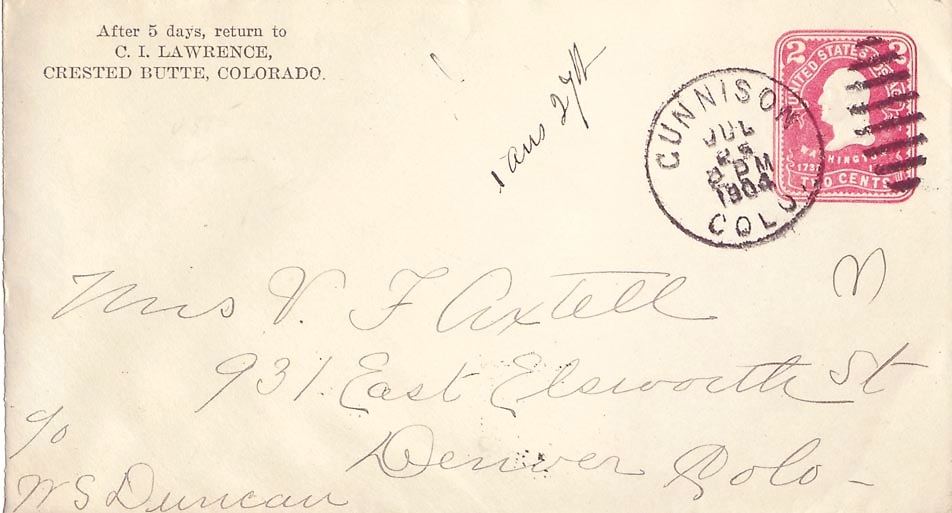 After 5 days, return to
C. I. LAWRENCE,
CRESTED BUTTE, COLORADO.
ans 27th
GUNNISON
JUL
25
PM
1904
COLO.
2 2
UNITED STATES
WASHINGTON
TWO CENTS
Mrs V. F Axtell
931 East Elsworth St
Denver Colo -
c/o
W S Duncan